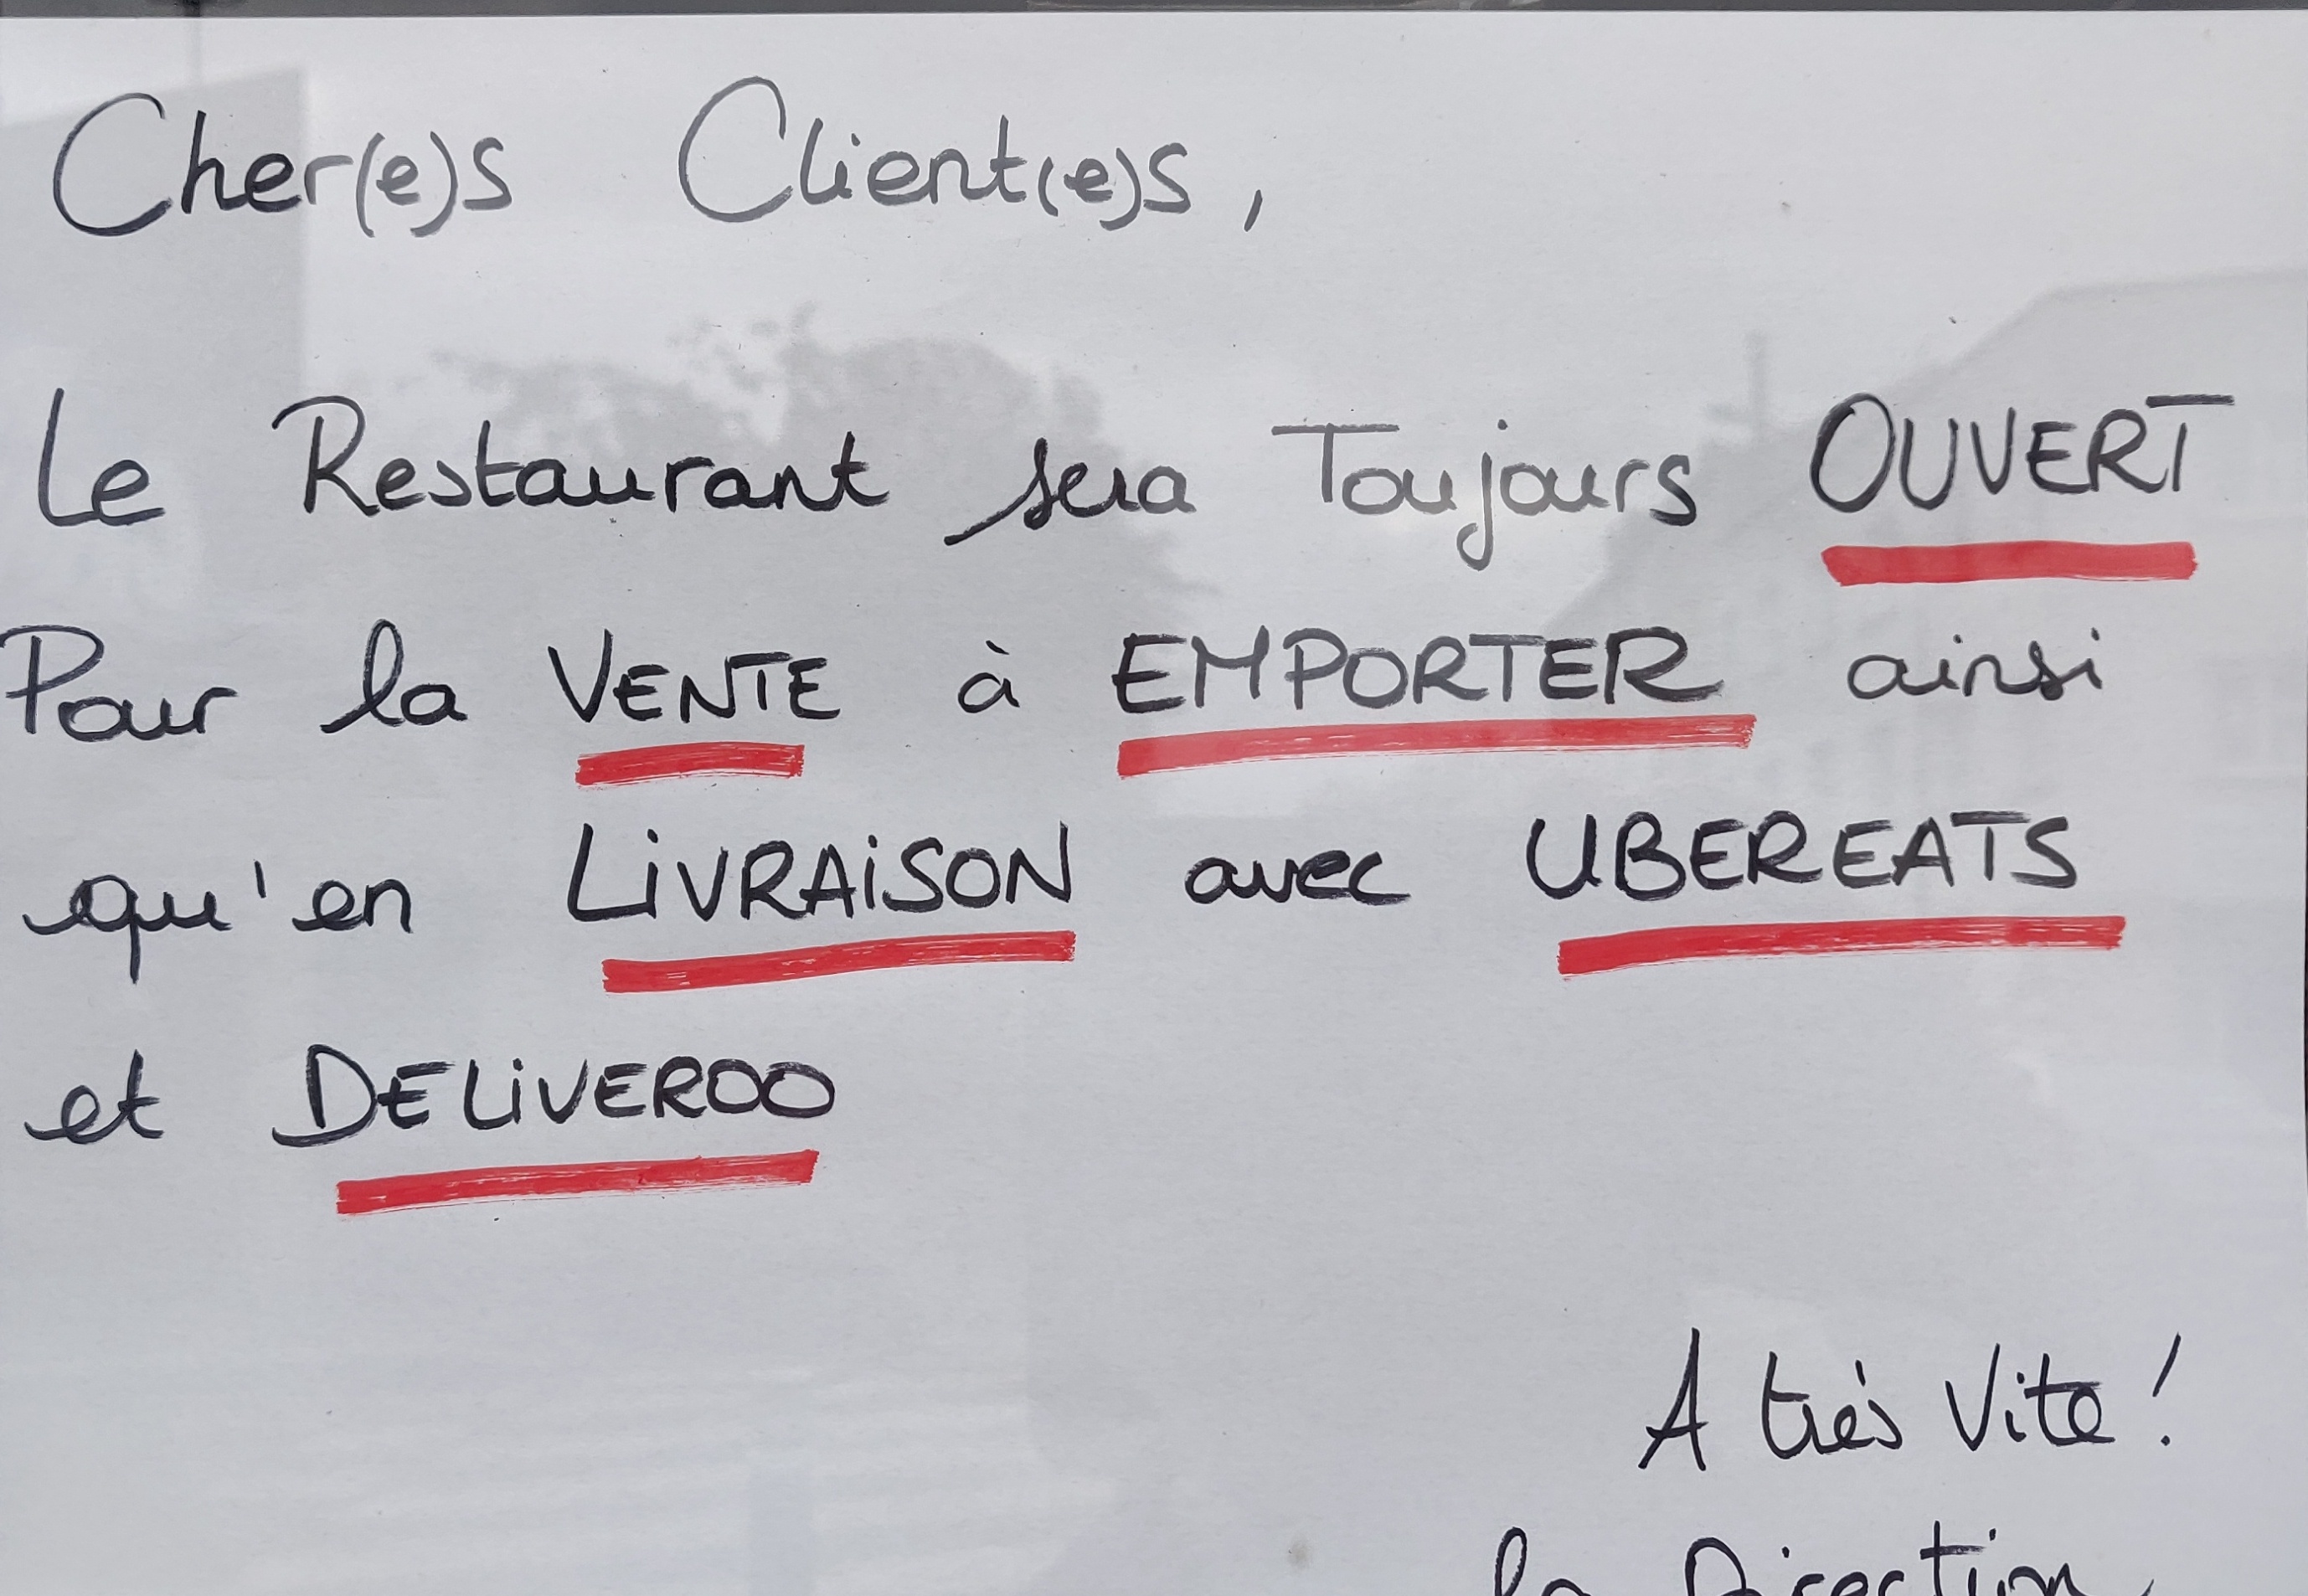 Cher(e)s Client(e)s,
Le Restaurant sera Toujours OUVERT
Pour la VENTE à EMPORTER ainsi
qu'en LiVRAiSON avec UBEREATS
et DELiVEROO
A très Vite !
la Direction